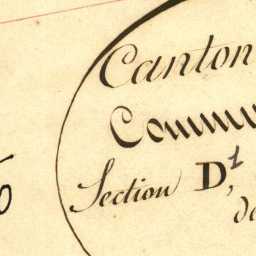 Canton
Commu
Section D¹,
de